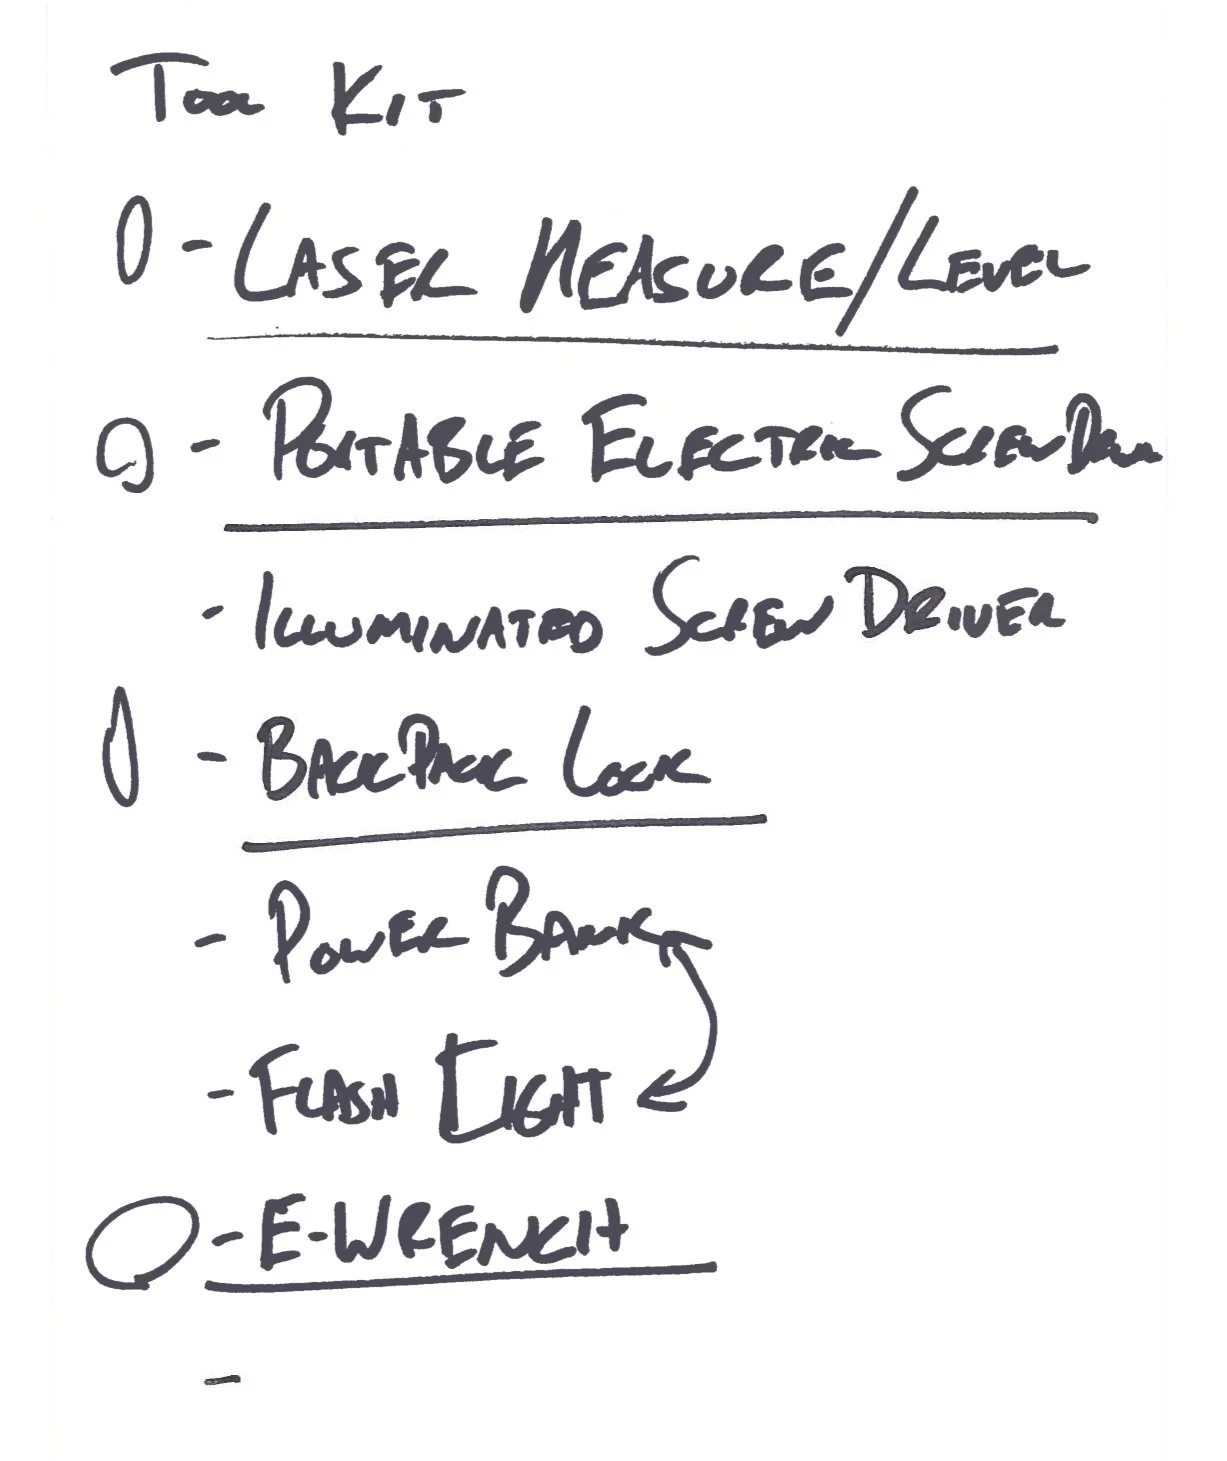 Tool Kit
- Laser Measure/Level
- Portable Electric Screw Driver
- Illuminated Screw Driver
- BackPack Lock
- Power Bank
- Flash Light
- E-Wrench
-